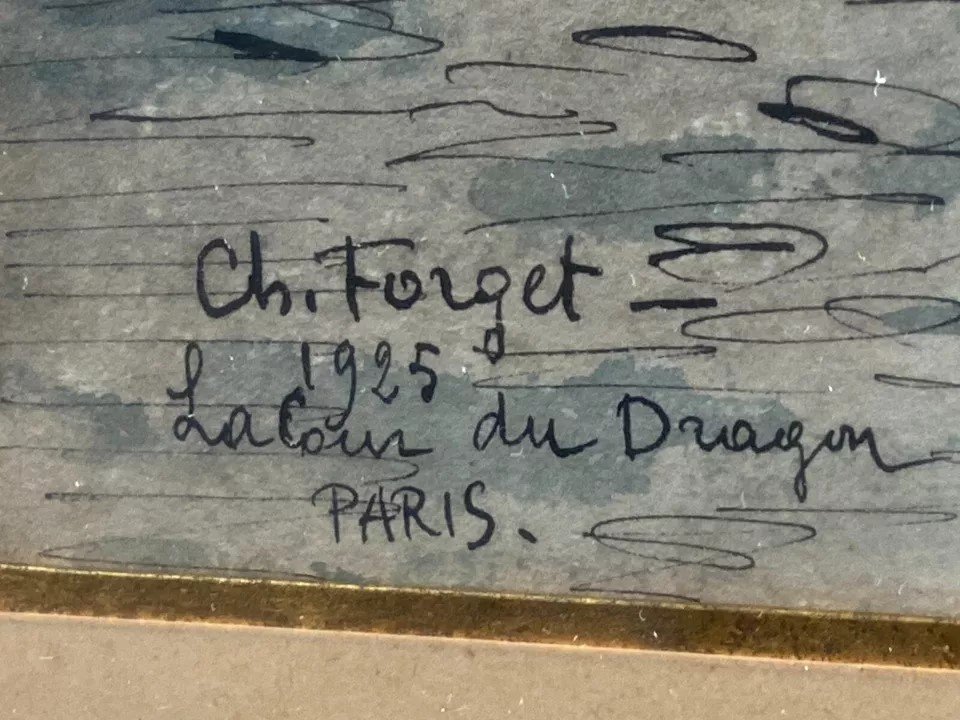 Ch. Forget
1925
La Cour du Dragon
PARIS.